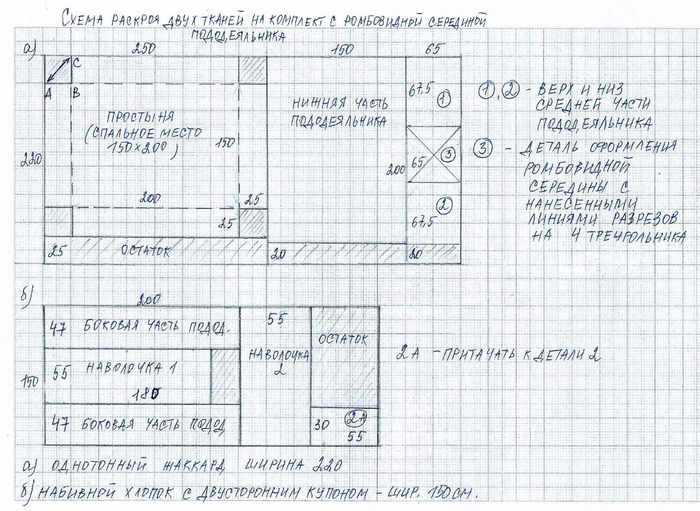 Схема раскроя двух тканей на комплект с ромбовидной серединой
пододеяльника
а)
250
150
65
С
А
В
Простыня
(спальное место
150х200)
150
220
200
25
25
25
остаток
нижняя часть
пододеяльника
200
20
67,5 1
65 3
67,5 2
20
1, 2 - верх и низ
средней части
пододеяльника
3 - деталь оформления
ромбовидной
середины с
нанесенными
линиями разрезов
на 4 треугольника
б)
200
150
47 боковая часть подод.
55 наволочка 1
180
47 боковая часть подод
55
наволочка
2
остаток
30 2А
55
2А - притачать к детали 2
а) однотонный жаккард ширина 220
б) набивной хлопок с двусторонним купоном - шир. 150 см.